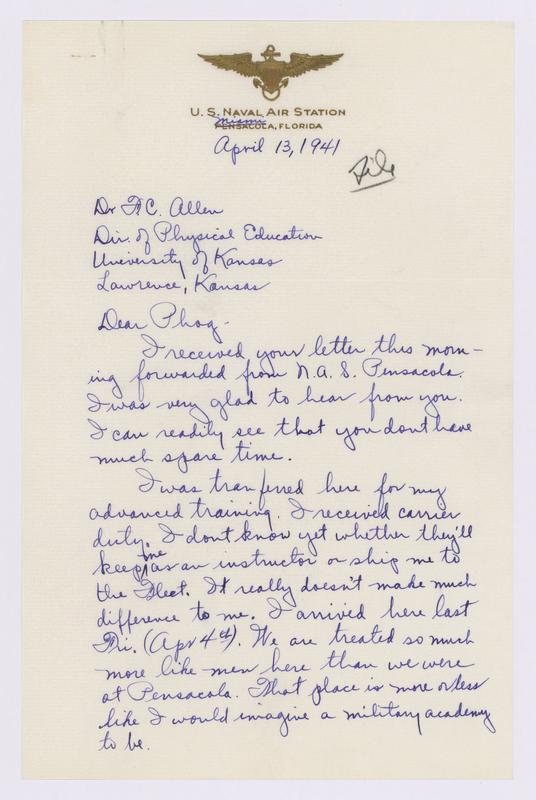 U. S. NAVAL AIR STATION
Miami
PENSACOLA, FLORIDA
April 13, 1941
File
Dr F.C. Allen
Dir. of Physical Education
University of Kansas
Lawrence, Kansas
Dear Phog -
I received your letter this morn-
ing forwarded from N. A. S. Pensacola.
I was very glad to hear from you.
I can readily see that you dont have
much spare time.
I was tranferred here for my
advanced training. I received carrier
duty. I dont know yet whether they'll
keep me as an instructor or ship me to
the Fleet. It really doesn't make much
difference to me. I arrived here last
Fri. (Apr 4th). We are treated so much
more like men here than we were
at Pensacola. That place is more or less
like I would imagine a military academy
to be.